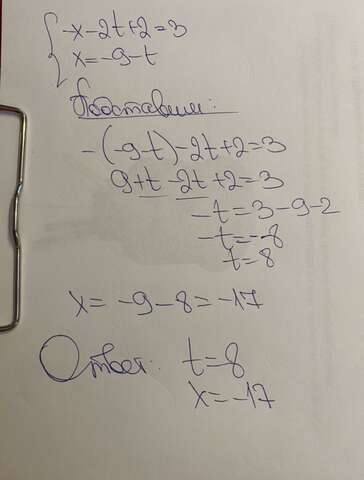 -x-2t+2=3
x=-9-t
Подставим:
-(-9-t)-2t+2=3
9+t-2t+2=3
-t=3-9-2
-t=-8
t=8
x= -9-8=-17
Ответ: t=8
x=-17